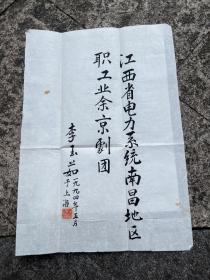 江西省电力系统南昌地区
职工业余京劇团
李玉茹一九九四年五月
于上海